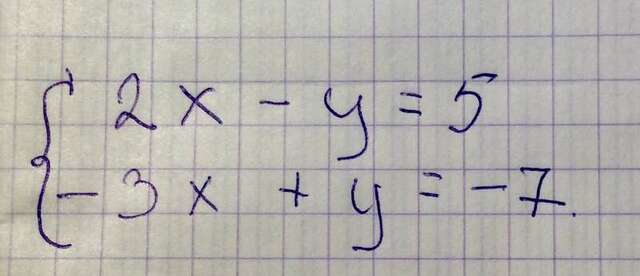 2x - y = 5
-3x + y = -7.